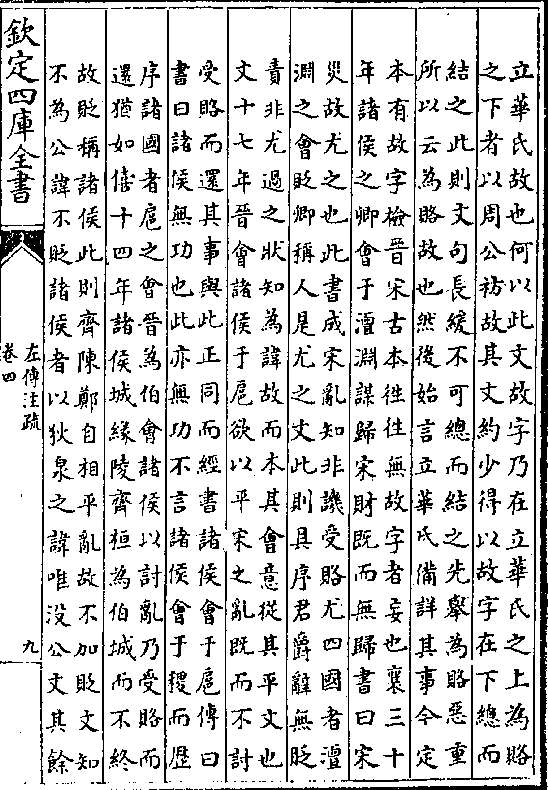 立華氏故也何以此文故字乃在立華氏之上為賂
之下者以周公祊故其文約少得以故字在下總而
結之此則文句長緩不可總而結之先舉為賂惡重
所以云為賂故也然後始言立華氏備詳其事今定
本有故字檢晉宋古本徃徃無故字者妄也襄三十
年諸侯之卿會于澶淵謀歸宋財既而無歸書曰宋
災故尤之也此書成宋亂知非譏受賂尤四國者澶
淵之會貶卿稱人是尤之文此則具序君爵辭無貶
責非尤過之狀知為諱故而本其會意從其平文也
文十七年晉會諸侯于扈欲以平宋之亂既而不討
受賂而還其事與此正同而經書諸侯會于扈傳曰
書曰諸侯無功也此亦無功不言諸侯會于稷而歴
序諸國者扈之會晉為伯會諸侯以討亂乃受賂而
還猶如僖十四年諸侯城緣陵齊桓為伯城而不終
故貶稱諸侯此則齊陳鄭自相平亂故不加貶文知
不為公諱不貶諸侯者以狄泉之諱唯没公文其餘
欽定四庫全書
左傳注疏
卷四
九